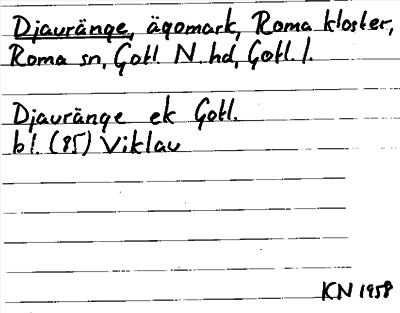 Djauränge, ägomark, Roma kloster,
Roma sn, Gotl. N. hd, Gotl. l.
Djauränge ek Gotl.
bl. (85) Viklau
KN 1958